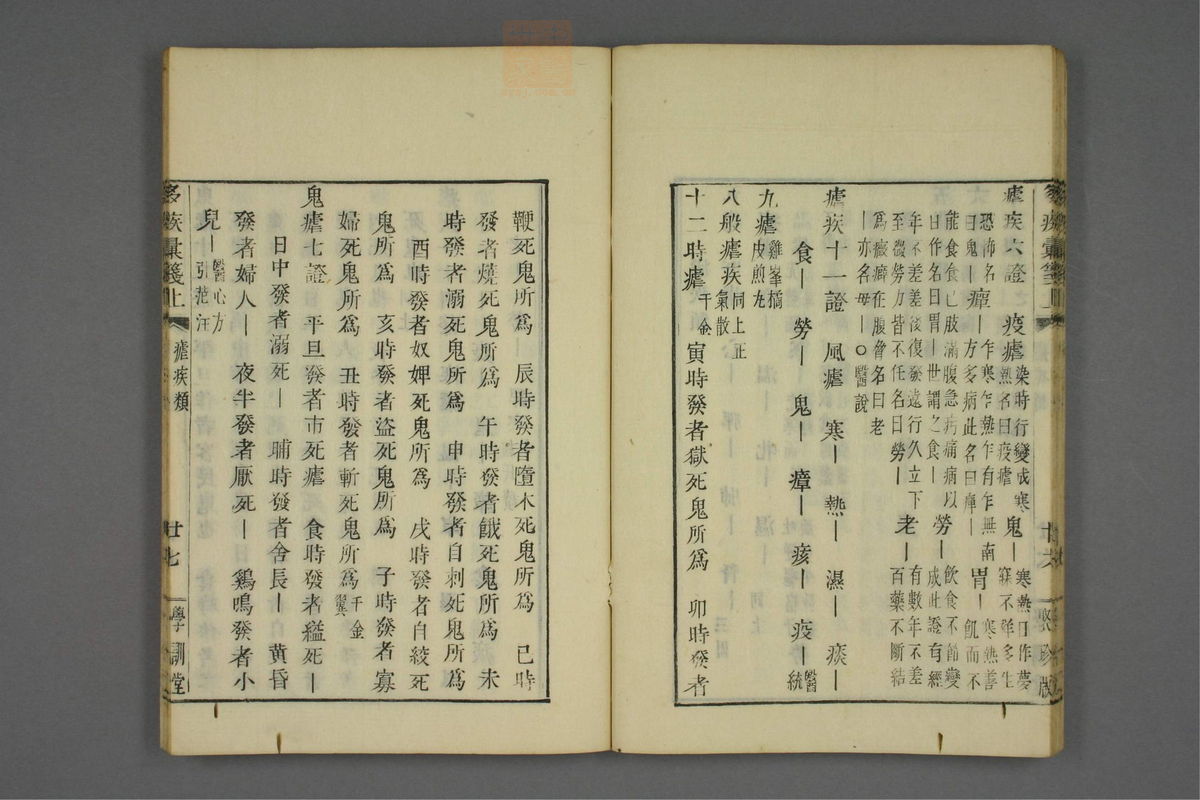 瘧疾六證　疫瘧染時行變成寒熱名曰疫瘧鬼｜寒熱日作夢寐不祥多生
恐怖名曰鬼｜瘴｜乍寒乍熱乍有乍無南方多病此名曰瘴｜胃｜飢而不寒熱善
能食食已肢滿腹急疠痛病以日作名曰胃｜世謂之食｜勞｜飲食不節變成此證有經
年不差差後復發遠行久立下至微勞力皆不任名曰勞｜老｜有數年不差百藥不斷結
爲癥癖在腹脅名曰老｜亦名母｜〇醫說
瘧疾十一證　風瘧　寒｜　熱｜　濕｜　痰｜
食｜　勞｜　鬼｜　瘴｜　痎｜　疫｜醫統
九瘧雞峯橘皮煎丸
八般瘧疾同上正氣散
十二時瘧千金　寅時發者獄死鬼所爲　卯時發者
鞭死鬼所爲｜　辰時發者墮木死鬼所爲　巳時
發者燒死鬼所爲　午時發者餓死鬼所爲　未
時發者溺死鬼所爲　申時發者自刺死鬼所爲
酉時發者奴婢死鬼所爲　戌時發者自絞死
鬼所爲　亥時發者盜死鬼所爲　子時發者寡
婦死鬼所爲　丑時發者斬死鬼所爲千金翼
鬼瘧七證　平旦發者市死瘧　食時發者縊死｜
日中發者溺死｜　晡時發者舍長｜　黃昏
發者婦人｜　夜半發者厭死｜　鷄鳴發者小
兒｜醫心方引范汪
瘧疾類　廿七　學訓堂